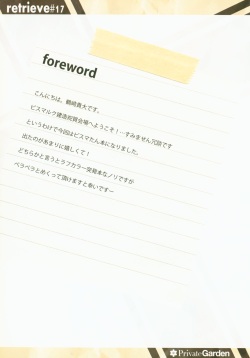 retrieve#17
foreword
こんにちは、鶴崎貴大です。
ビスマルク建造祝賀会場へようこそ！…すみません冗談です
というわけで今回はビスマたん本になりました。
出たのがあまりに嬉しくて！
どちらかと言うとラフカラー突発本なノリですが
ペラペラとめくって頂けますと幸いですー
PrivateGarden